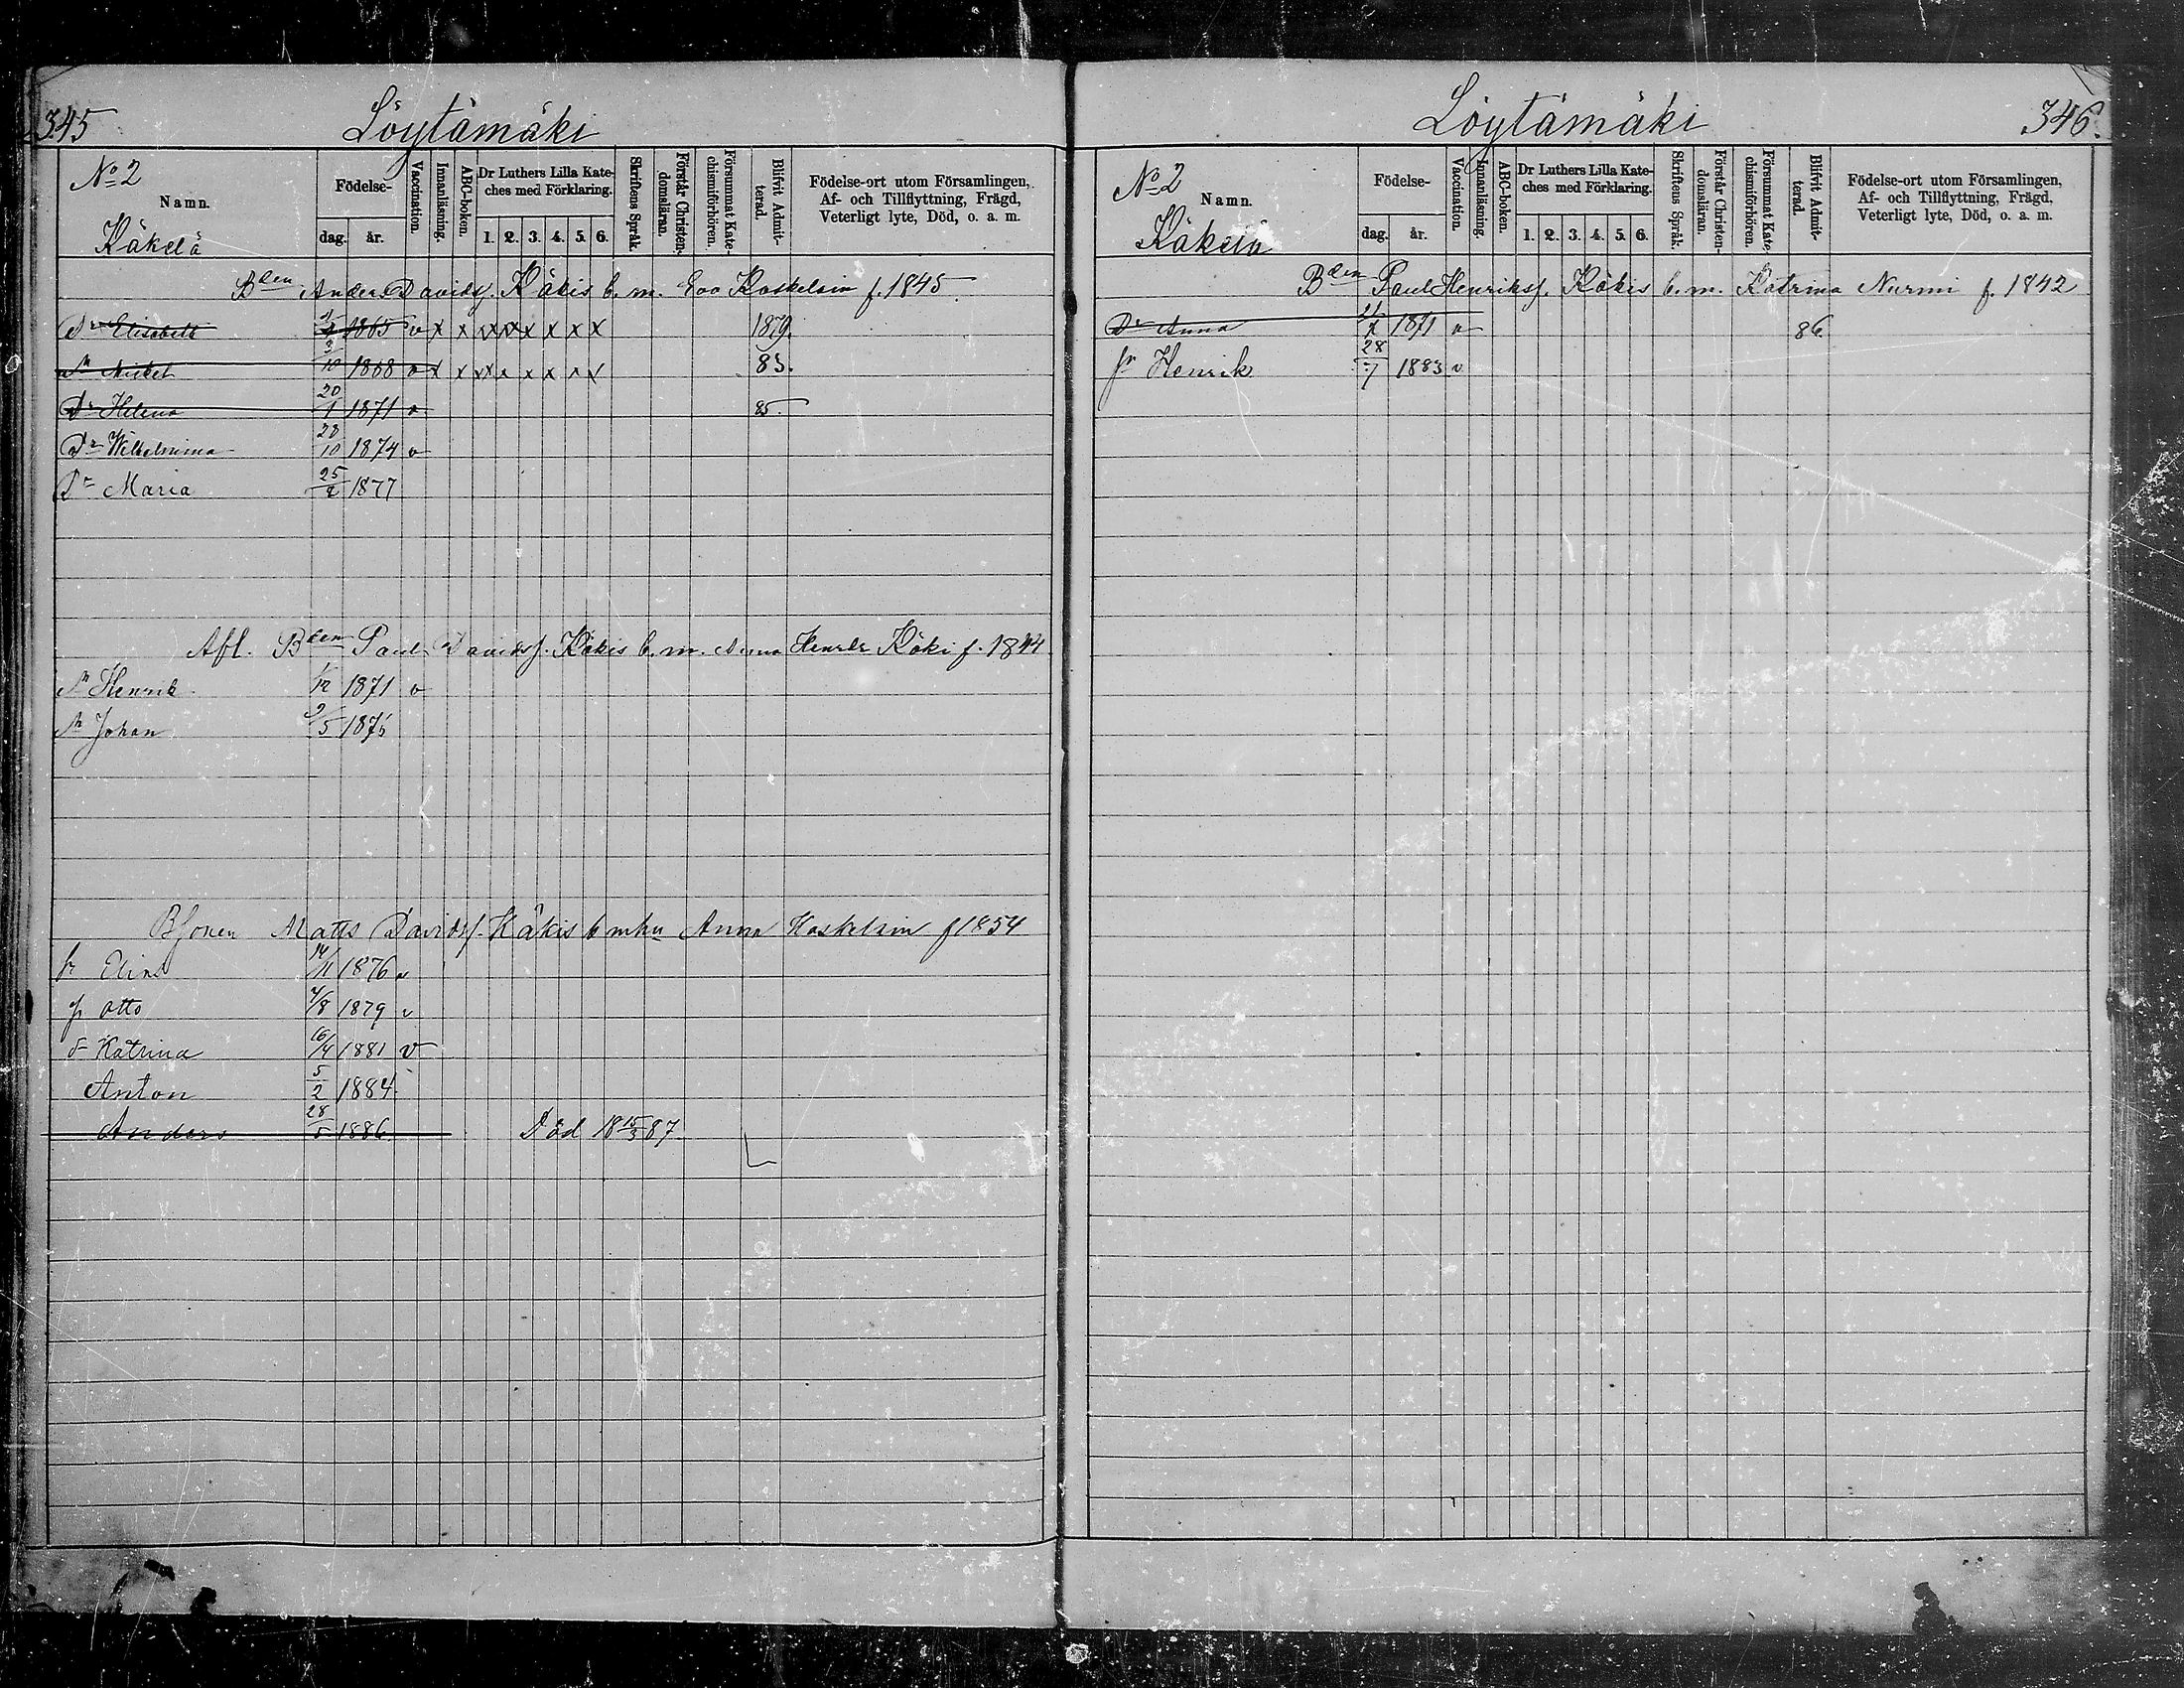 345
Löytämäki
No 2
Namn.
Käkelä
Födelse-
dag. år.
Vaccination.
Innanläsning.
ABC-boken.
Dr Luthers Lilla Kate-
ches med Förklaring.
1. 2. 3. 4. 5. 6.
Skriftens Språk.
Förstår Christen-
domsläran.
Försummat Kate-
chismiförhören.
Blifvit Admit-
terad.
Födelse-ort utom Församlingen,
Af- och Tillflyttning, Frägd,
Veterligt lyte, Död, o. a. m.
Bden Anders Davidsf. Käkis b. m. Eva Koskelsin f. 1845
Dr Elisabeth 1865 v x x x x x x x x x 1879.
Sn Mickel 3/10 1868 v x x x x x x x x 83.
Dr Helena 20/1 1871 v 85.
Dr Wilhelmina 28/10 1874 v
Dr Maria 25/2 1877
Afl. Bden Paul Davidsf. Käkis b. m. Anna Henrsdr Käki f. 1844
Sn Henrik 1/12 1871 v
Sn Johan 9/5 1875
Bsonen Matts Davidsf. Käkis b mhu Anna Koskelsin f 1854
sn Elias 14/11 1876 v
sn Otto 4/8 1879 v
dr Katrina 16/4 1881 v
Anton 5/2 1884
Anders 28/5 1886 Död 18 15/3 87
Löytämäki
346.
No 2
Namn.
Käkelä
Födelse-
dag. år.
Vaccination.
Innanläsning.
ABC-boken.
Dr Luthers Lilla Kate-
ches med Förklaring.
1. 2. 3. 4. 5. 6.
Skriftens Språk.
Förstår Christen-
domsläran.
Försummat Kate-
chismiförhören.
Blifvit Admit-
terad.
Födelse-ort utom Församlingen,
Af- och Tillflyttning, Frägd,
Veterligt lyte, Död, o. a. m.
Bden Paul Henriksf. Käkis b. m. Katrina Nurmi f. 1842
Dr Anna 11/7 1871 v 86
sn Henrik 28/7 1883 v